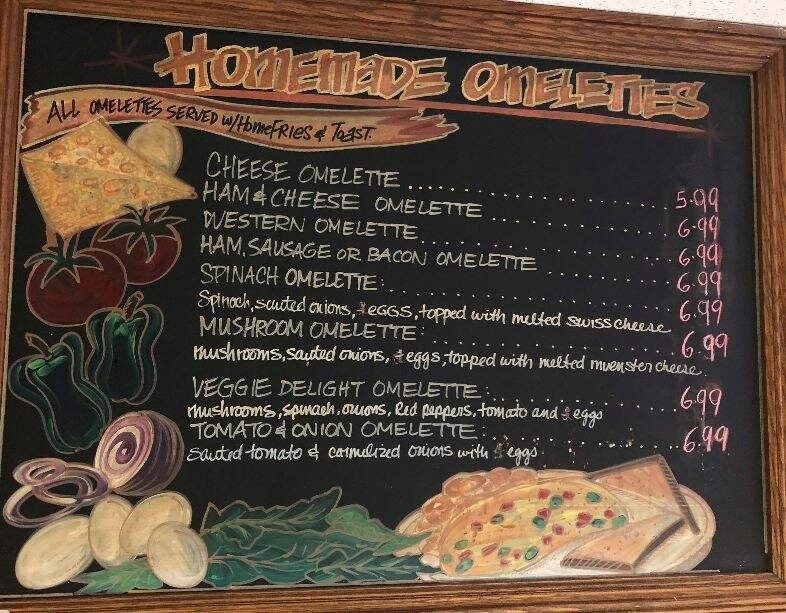 HOMEMADE OMELETTES
ALL OMELETTES SERVED W/HOMEFRIES & TOAST.
CHEESE OMELETTE 5.99
HAM & CHEESE OMELETTE 6.99
WESTERN OMELETTE 6.99
HAM, SAUSAGE OR BACON OMELETTE 6.99
SPINACH OMELETTE: 6.99
Spinach, sauted onions, EGGS, topped with melted swiss cheese
MUSHROOM OMELETTE: 6.99
mushrooms, sauted onions, eggs, topped with melted muenster cheese.
VEGGIE DELIGHT OMELETTE: 6.99
mushrooms, spinach, onions, Red peppers, tomato and eggs
TOMATO & ONION OMELETTE: 6.99
sauted tomato & carmelized onions with eggs